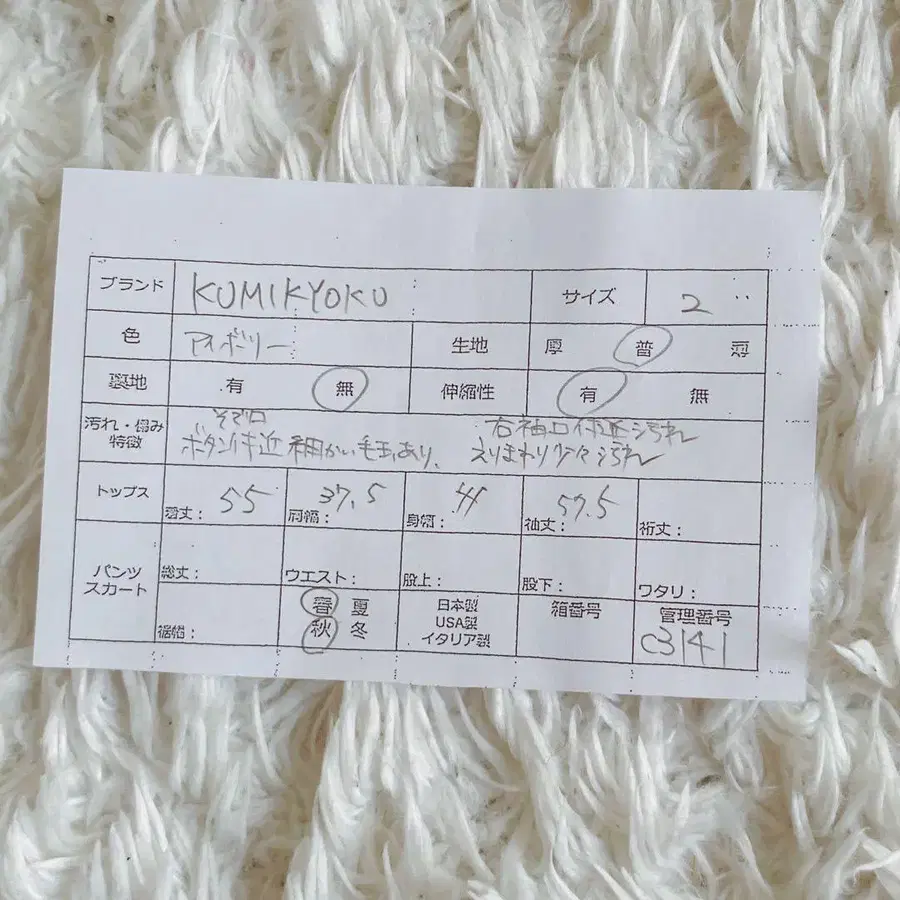 ブランド KUMIKYOKU サイズ 2
色 アイボリー 生地 厚 普 薄
裏地 有 無 伸縮性 有 無
汚れ・傷み
特徴
そで口
ボタン付近 細かい毛玉あり、
右袖口付近汚れ
えりまわり少々汚れ
トップス 着丈: 55 肩幅: 37.5 身幅: 41 袖丈: 57.5 裄丈:
パンツ
スカート
総丈: ウエスト: 股上: 股下: ワタリ:
裾幅:
春 夏
秋 冬
日本製
USA製
イタリア製
箱番号
管理番号
C3141